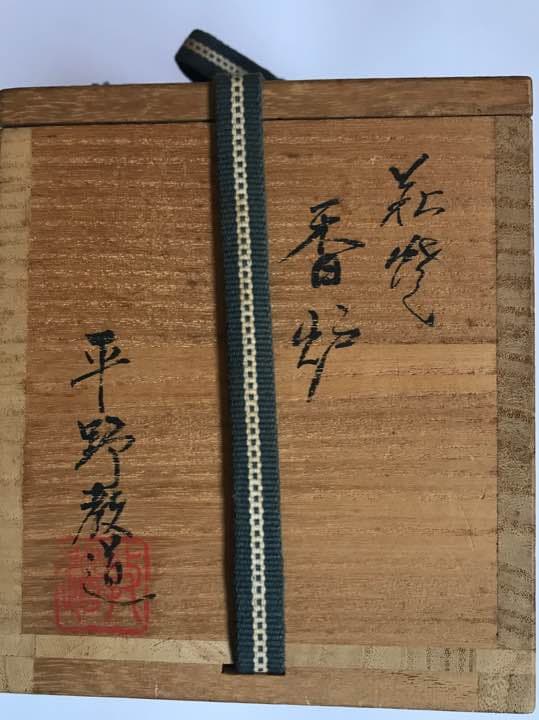 萩焼
香炉
平野教道